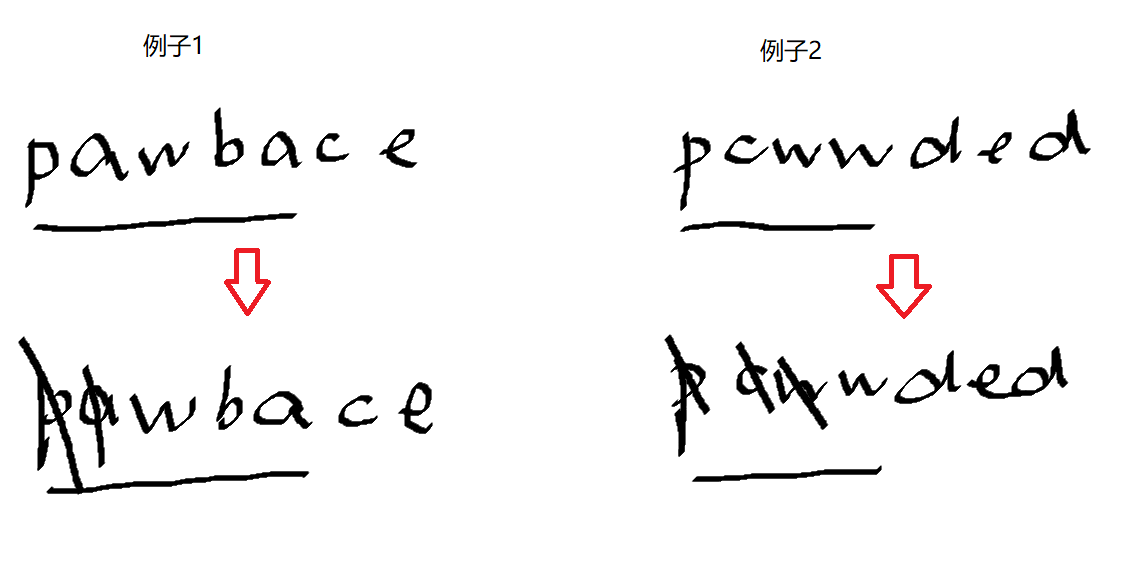 例子1
pawbace
pawbace
例子2
pcwwded
pcwwded